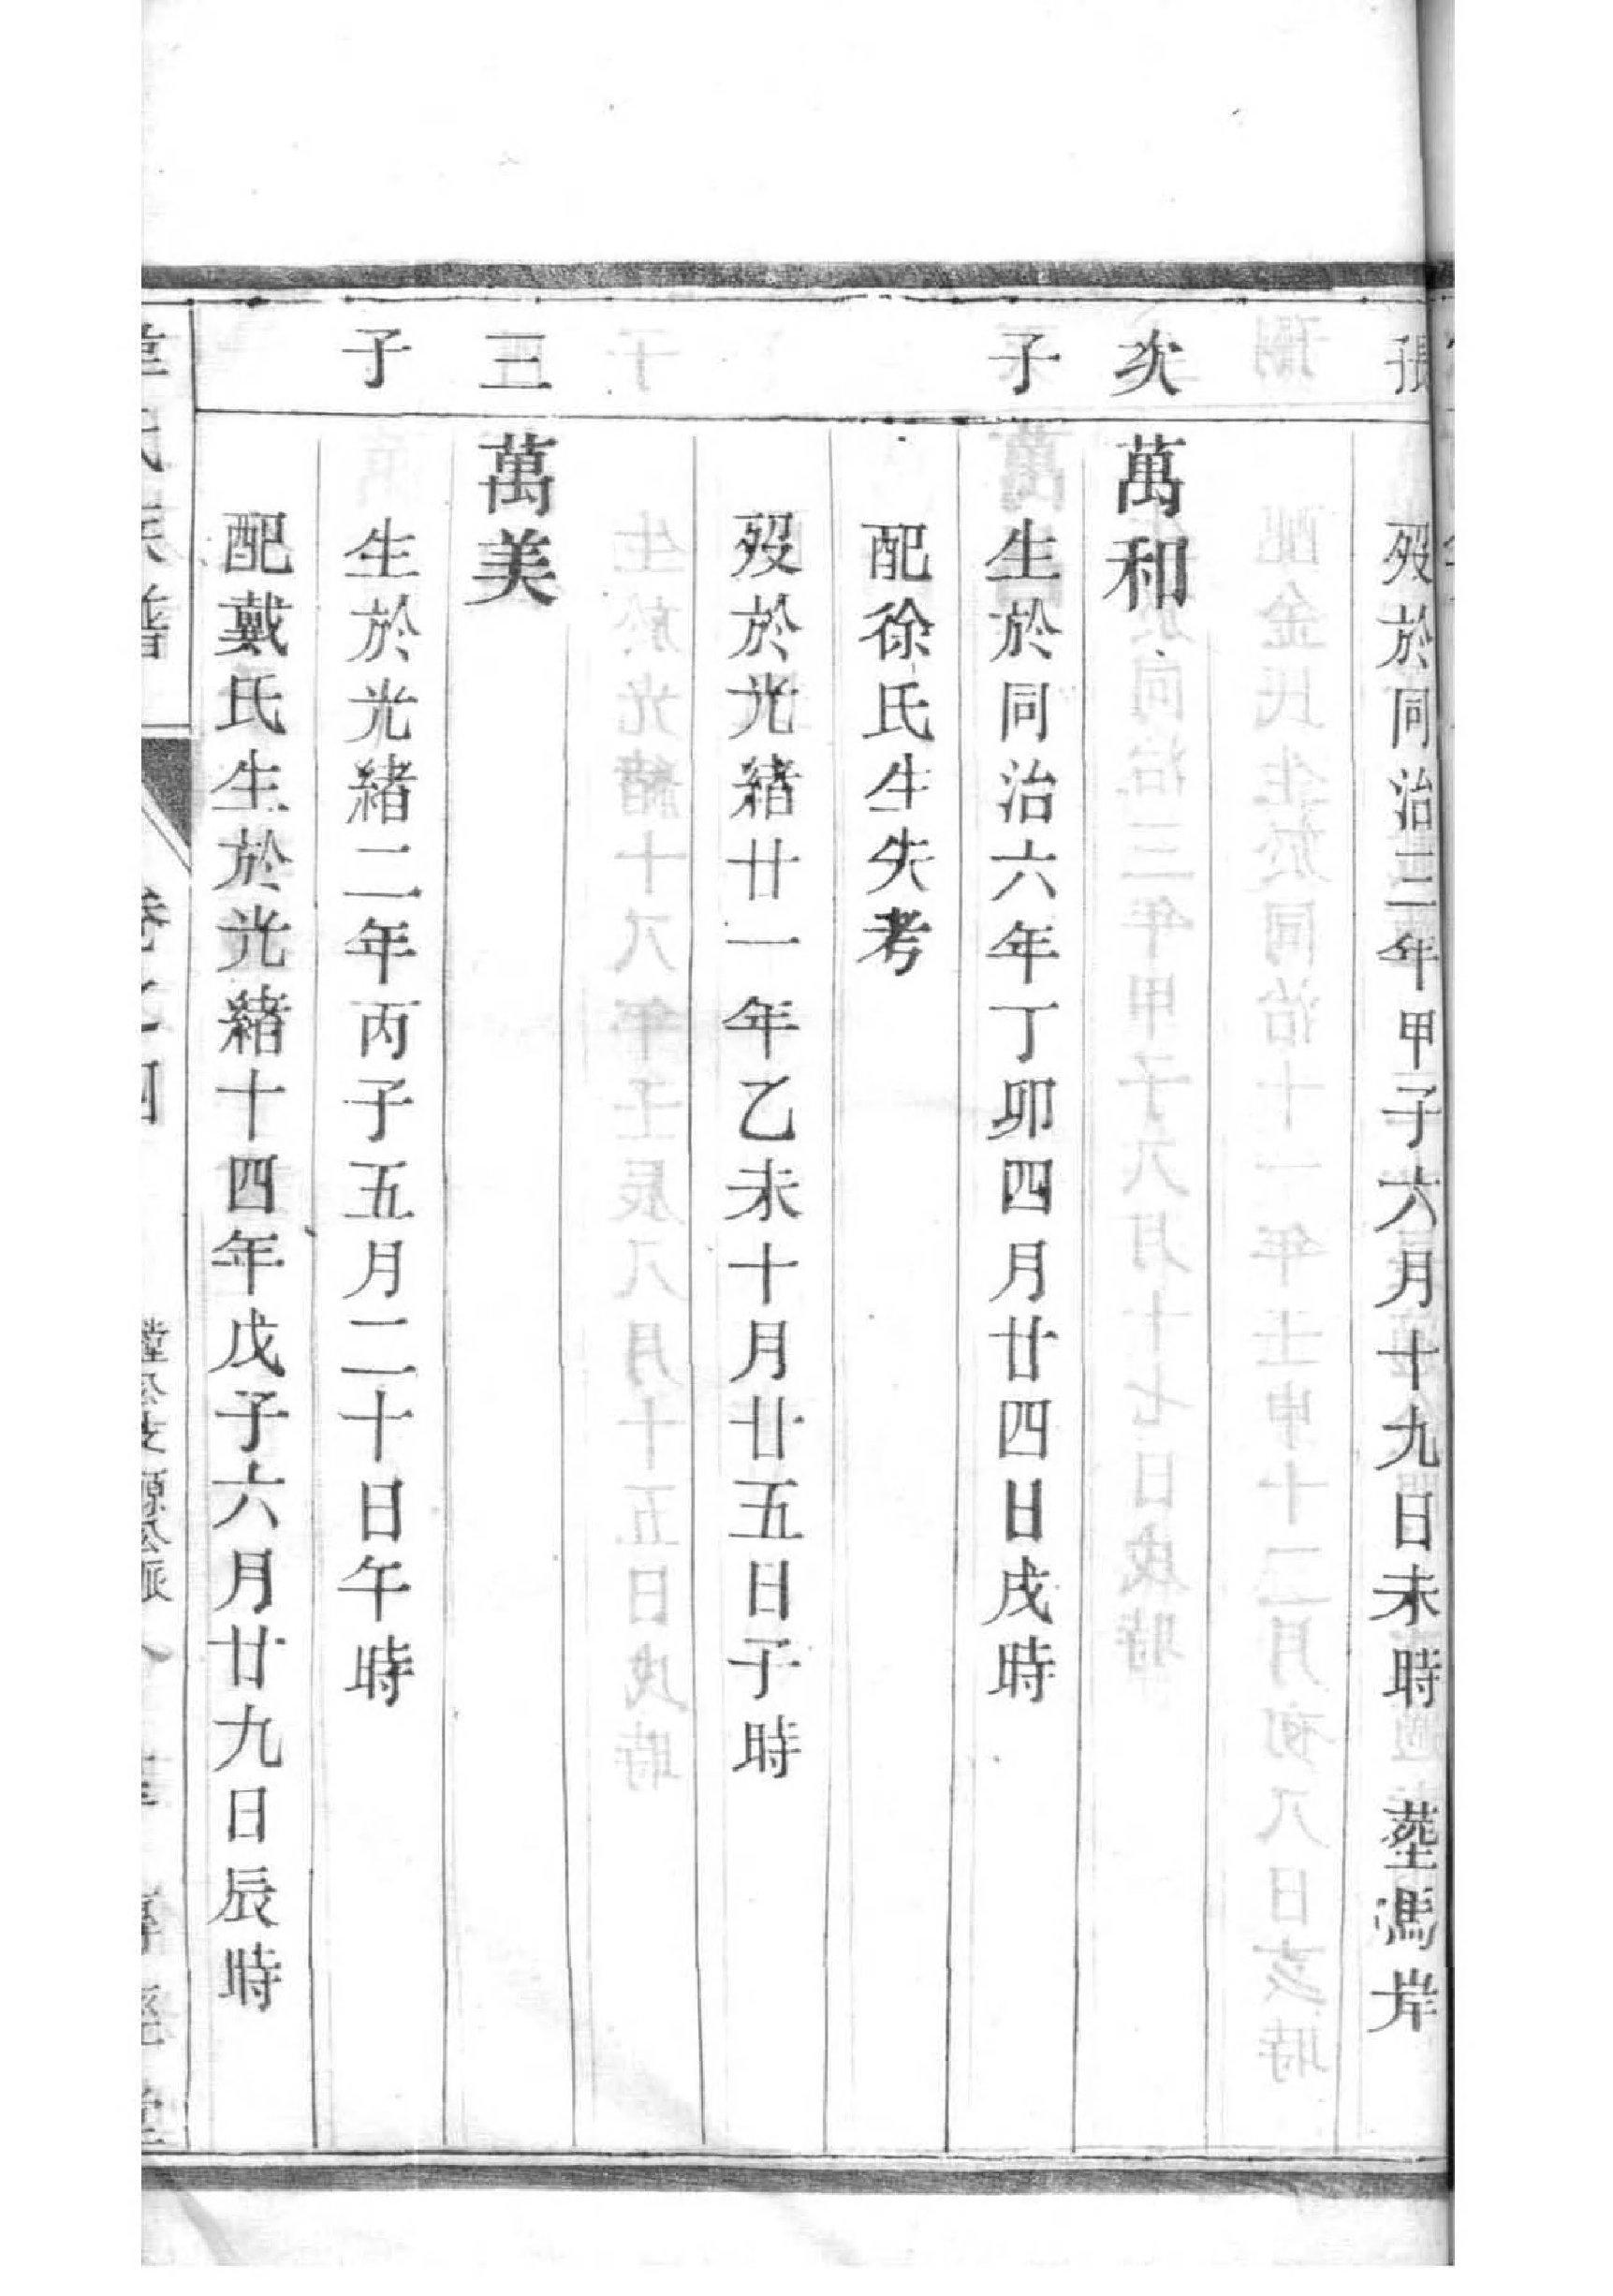 歿於同治三年甲子六月十九日未時　塟馮岸
次　萬和
子　生於同治六年丁卯四月廿四日戌時
配徐氏生失考
歿於光緒廿一年乙未十月廿五日子時
三　萬美
子　生於光緒二年丙子五月二十日午時
配戴氏生於光緒十四年戊子六月廿九日辰時
氏宗譜
卷之四